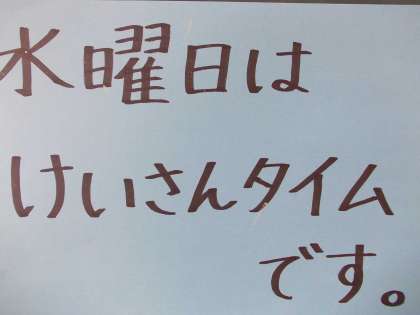 水曜日は
けいさんタイム
です。